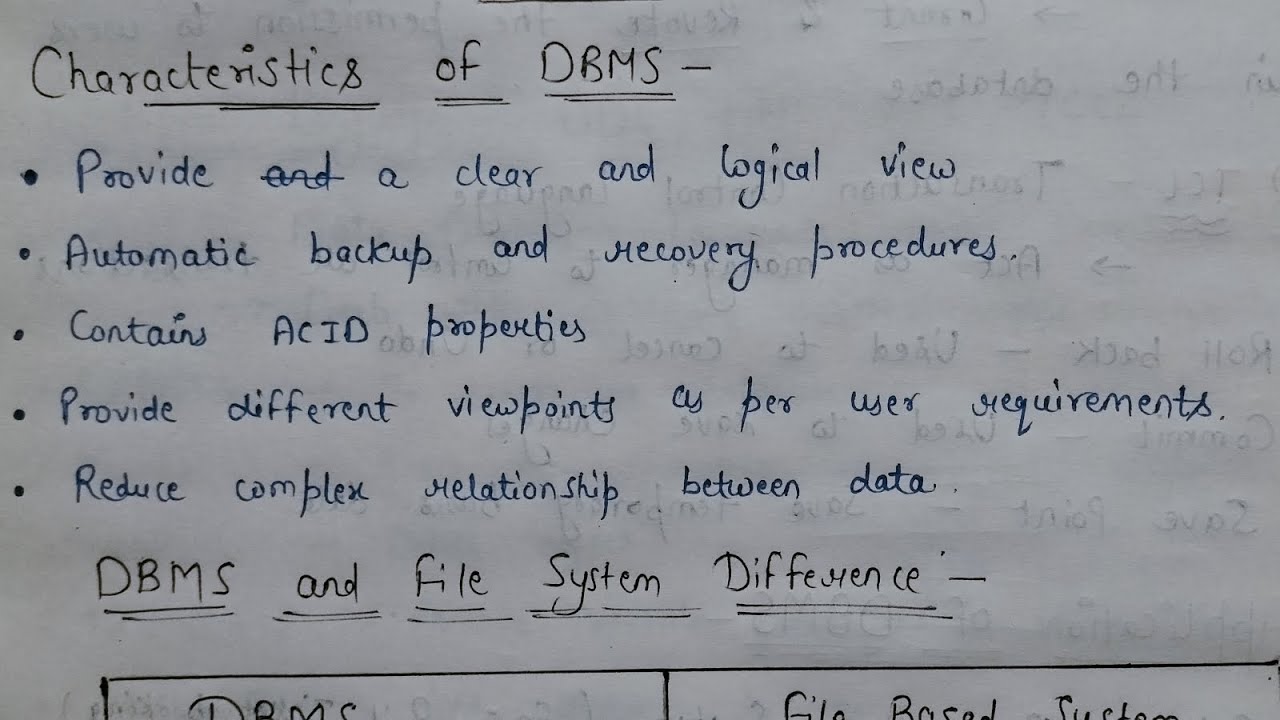 Characteristics of DBMS –
• Provide and a clear and logical view
• Automatic backup and recovery procedures.
• Contains ACID properties
• Provide different viewpoints as per user requirements.
• Reduce complex relationship between data.
DBMS and File System Difference –
DBMS File Based System